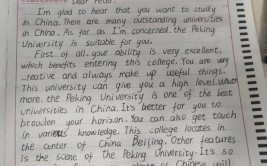 Dear Peter.
I'm glad to hear that you want to study
in China. There are many outstanding universities
in China. As far as I'm concerned, the Peking
University is suitable for you.
First of all your ability is very excellent,
which benefits entering this college. You are very
creative and always make up useful things.
This university can give you a high level. What
more. the Peking University is one of the best
universities in China. It's better for you to
broaden your horizon. You can also get touch
in various knowledge. This college locates in
the center of China Beijing. Other features
is the scene of the Peking University. It's so
Chinese will